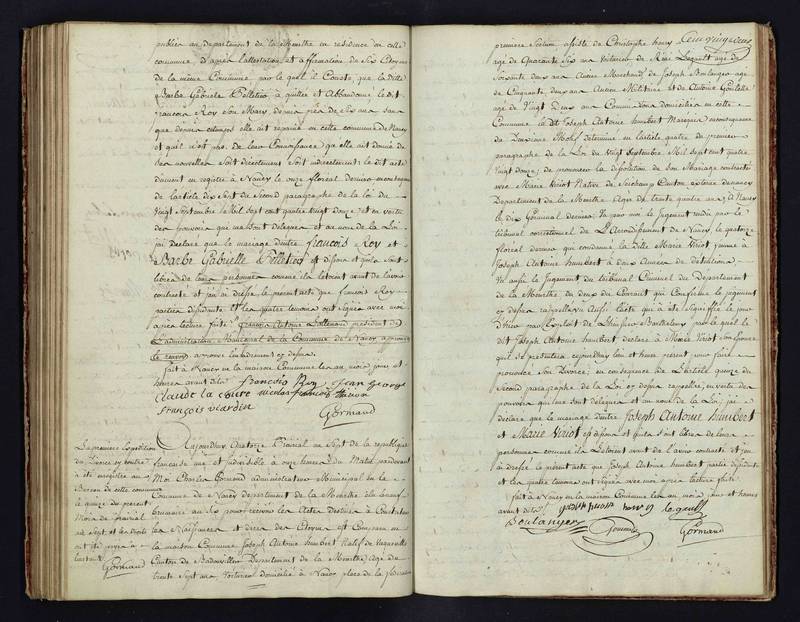 publier au departement de la Meurthe en residence en cette
commune d'apres l'attestation et affirmation de six Citoyens
de la même Commune par lequel il Conste, que la ditte
Barbe Gabriele Pelletier a quittée et Abbandonné le dit
francois Roy son Mary depuis près de six ans sans
que depuis ce temps elle ait reparue en cette commune de Nancy
et qu'il n'est pas de leur Connoissance qu'elle ait donné de
ses nouvelles soit directement soit indirectement; le dit acte
duement en registré à Nancy le onze floreal dernier
de l'article dix sept du Second paragraphe de la loi du
vingt Septembre Mil sept cent quatre vingt douze et en vertu
des pouvoirs qui me sont délégués et au nom de la Loi
j'ai declaré que le mariage d'entre françois Roy et
Barbe Gabrielle Pelletier est dissous et qu'ils sont
libres de leurs personnes comme ils l'étoient avant de l'avoir
contracté et j'ai dressé le présent acte que françois Roy
partie et les quatre temoins ont signés avec moi
après lecture faite
l'administration Municipal de la Commune de Nancy
fait à Nancy en la maison Commune les an mois jour et
heures avant dits françois Roy Jean George
Claude la
françois
Gormand
La premiere Expedition
du Divorce cy contre
a été enregistrée au
Bureau de cette commune
le quinze du present
Mois de prairial
an Sept et les droits
ont été perçu à
l'instant
Gormand
Aujourdhui quatorze Prairial an Sept de la republique
française une et indivisible à onze heures du Matin pardevant
Moi Charles Gormand administrateur Municipal en la
Commune de Nancy departement de la Meurthe
brumaire an six pour recevoir les Actes destinés à Constater
les Naissances et décès des Citoyens est Comparu en
la maison Commune Joseph Antoine humbert Natif de
Canton de Badonviller Departement de la Meurthe Agé de
trente Sept ans domicilié à Nancy place de la
Cent vingt deux
premiere Section assisté de Christophe
agé de Quarante six ans voiturier de Réné Legault agé de
Soixante deux ans Marchand de Joseph Boulanger agé
de Cinquante deux ans Ancien Militaire et de Antoine
agé de Vingt Deux ans domiciliés en cette
Commune le dit Joseph Antoine humbert
du Deuxieme Motif determiné en l'article quatre du premier
paragraphe de la Loi du vingt Septembre Mil Sept cent quatre
vingt douze de prononcer la dissolution de son Mariage contracté
avec Marie Viriot Native de Seichamp Canton
Departement de la Meurthe Agée de trente quatre ans à Nancy
le dix Germinal dernier Vu par moi le Jugement rendu par le
tribunal correctionnel de L'Arrondissement de Nancy le quatorze
floréal dernier qui condamne la Ditte Marie Viriot femme à
Joseph Antoine humbert à deux années de détention
Vu aussi le Jugement du tribunal Criminel du Departement
de la Meurthe du deux du Courant qui Confirme le jugement
cy dessus rappellé Vu aussi l'acte qui a été signifié le jour
d'hier par Exploit de l'huissier Barthelemy par lequel le
dit Joseph Antoine humbert declare à Marie Viriot son Epouse
qu'il se présentera aujourdhui lieu et heure present pour faire
prononcer son Divorce; en consequence de L'article quinze du
Second paragraphe de la Loi cy dessus rappellée, en vertu des
pouvoirs qui me sont délégués et au nom de la Loi, j'ai
déclaré que le mariage d'entre Joseph Antoine humbert
et Marie Viriot est dissous et qu'ils sont libres de leurs
personnes comme ils L'étoient avant de l'avoir contracté et j'en
ai dressé le present acte que Joseph Antoine humbert partie
et les quatre temoins ont signés avec moi après lecture faite
fait à Nancy en la maison Commune les an mois jour et heures
avant dits legault
Boulanger
Gormand